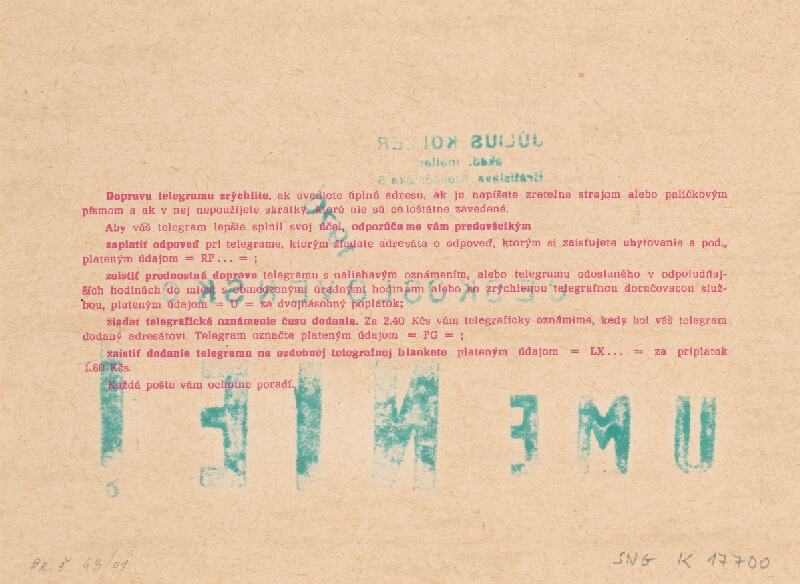 JÚLIUS KOLLER
akad. maliar
Bratislava
Dopravu telegramu zrýchlite, ak uvediete úplnú adresu, ak ju napíšete zreteľne strojom alebo paličkovým
písmom a ak v nej nepoužijete skratky, ktoré nie sú celoštátne zavedené.
Aby váš telegram lepšie splnil svoj účel, odporúčame vám predovšetkým
zaplatiť odpoveď pri telegrame, ktorým žiadate adresáta o odpoveď, ktorým si zaisťujete ubytovanie a pod.,
plateným údajom = RP... = ;
zaistiť prednostnú dopravu telegramu s naliehavým oznámením, alebo telegramu odoslaného v odpoludňaj-
ších hodinách do miest s obmedzenými úradnými hodinami alebo so zrýchlenou telegrafnou doručovacou služ-
bou, plateným údajom = U = za dvojnásobný poplatok;
ČESKOSLOVENSKO
žiadať telegrafické oznámenie času dodania. Za 2,40 Kčs vám telegraficky oznámime, kedy bol váš telegram
dodaný adresátovi. Telegram označte plateným údajom = PG = ;
zaistiť dodanie telegramu na ozdobnej telegrafnej blankete plateným údajom = LX... = za príplatok
1.80 Kčs.
Každá pošta vám ochotne poradí.
UMENIE!
PR. Č 63/01
SNG K 17700